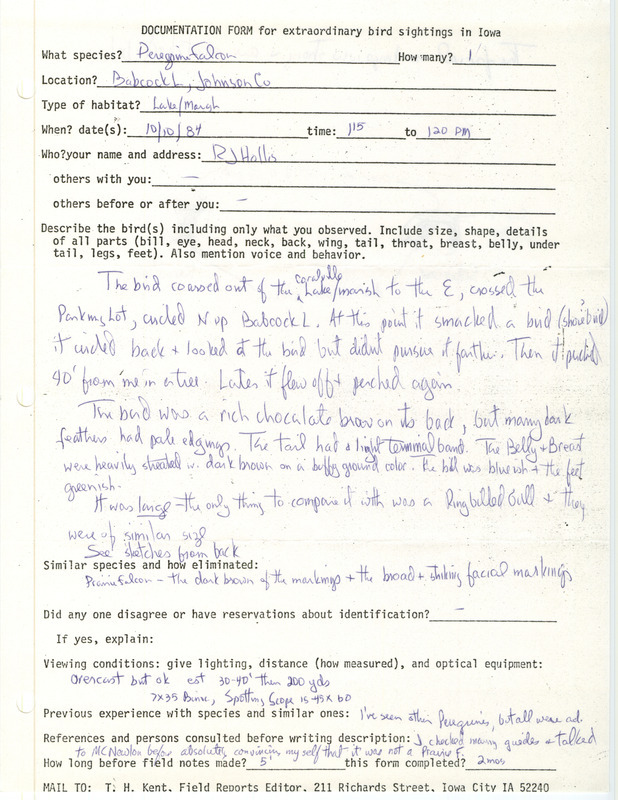 DOCUMENTATION FORM for extraordinary bird sightings in Iowa
What species? Peregrine Falcon How many? 1
Location? Babcock L, Johnson Co
Type of habitat? Lake/Marsh
When? date(s): 10/10/84 time: 115 to 120 PM
Who?your name and address: RJ Hollis
others with you: —
others before or after you: —
Describe the bird(s) including only what you observed. Include size, shape, details
of all parts (bill, eye, head, neck, back, wing, tail, throat, breast, belly, under
tail, legs, feet). Also mention voice and behavior.
The bird coursed out of the coralville Lake/marish to the E, crossed the
Parking Lot, circled N up Babcock L. At this point it smacked a bird (shorebird)
it circled back + looked at the bird but didnt pursue it farther. Then it perched
40' from me in a tree. Later it flew off + perched again.
The bird was a rich chocolate brown on its back, but many dark
feathers had pale edgings. The tail had a light terminal band. The Belly + Breast
were heavily streaked w. dark brown on a buffy ground color. the bill was blueish + the feet
greenish.
It was large - the only thing to compare it with was a Ringbilled Gull + they
were of similar size
See sketches from back
Similar species and how eliminated:
Prairie Falcon - the dark brown of the markings + the broad + striking facial markings
Did any one disagree or have reservations about identification? —
If yes, explain:
Viewing conditions: give lighting, distance (how measured), and optical equipment:
Overcast but ok est 30-40' then 200 yds
7X35 Binoc, Spotting Scope 15-45 X 60
Previous experience with species and similar ones: I've seen other Peregrines, but all were ad.
References and persons consulted before writing description: I checked many guides + talked
to MC Newlon before absolutely convincing myself that it was not a Prairie F.
How long before field notes made? 5' this form completed? 2 mos
MAIL TO: T. H. Kent, Field Reports Editor, 211 Richards Street, Iowa City IA 52240